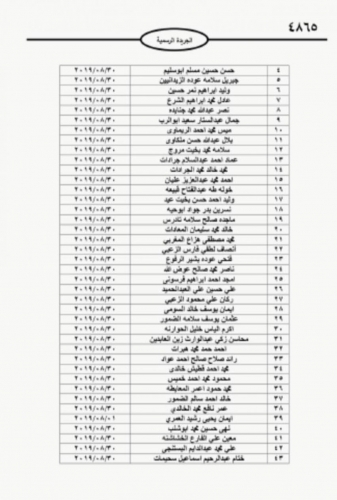 ٤٨٦٥
الجريدة الرسمية
٤ حسن حسين مسلم ابوسليم ٢٠١٩/٠٨/٣٠
٥ جبريل سلامه عوده الزيدانيين ٢٠١٩/٠٨/٣٠
٦ وليد ابراهيم نمر حسين ٢٠١٩/٠٨/٣٠
٧ عادل محمد ابراهيم الشرع ٢٠١٩/٠٨/٣٠
٨ نصر عبدالله محمد جنايده ٢٠١٩/٠٨/٣٠
٩ جمال عبدالستار سعيد ابوالرب ٢٠١٩/٠٨/٣٠
١٠ ميس محمد احمد الريماوى ٢٠١٩/٠٨/٣٠
١١ بلال عبدالله حسن ملكاوى ٢٠١٩/٠٨/٣٠
١٢ سلامه محمد بخيت مروح ٢٠١٩/٠٨/٣٠
١٣ عماد احمد عبدالسلام جرادات ٢٠١٩/٠٨/٣٠
١٤ محمد خالد محمد الجرادات ٢٠١٩/٠٨/٣٠
١٥ احمد محمد عبدالعزيز عليان ٢٠١٩/٠٨/٣٠
١٦ خوله طه عبدالفتاح قبيعه ٢٠١٩/٠٨/٣٠
١٧ وليد احمد حسن بخيت عيد ٢٠١٩/٠٨/٣٠
١٨ نسرين بدر جواد ابوحيه ٢٠١٩/٠٨/٣٠
١٩ ماجده صالح سلامه تادرس ٢٠١٩/٠٨/٣٠
٢٠ محمد خالد سليمان المعادات ٢٠١٩/٠٨/٣٠
٢١ محمد مصطفى هزاع المغربي ٢٠١٩/٠٨/٣٠
٢٢ انصاف لطفي فارس الزعبي ٢٠١٩/٠٨/٣٠
٢٣ فتحي عوده بشير الرفوع ٢٠١٩/٠٨/٣٠
٢٤ ناصر محمد صالح عوض الله ٢٠١٩/٠٨/٣٠
٢٥ امجد احمد ابراهيم فرسونى ٢٠١٩/٠٨/٣٠
٢٦ علي حسين علي العبدالحميد ٢٠١٩/٠٨/٣٠
٢٧ ركان علي محمود الزعبي ٢٠١٩/٠٨/٣٠
٢٨ ايمان يوسف خالد السومى ٢٠١٩/٠٨/٣٠
٢٩ عثمان يوسف سلامه الضمور ٢٠١٩/٠٨/٣٠
٣٠ اكرم الياس خليل الحوارنه ٢٠١٩/٠٨/٣٠
٣١ محاسن زكي عبدالوارث زين العابدين ٢٠١٩/٠٨/٣٠
٣٢ احمد حمد محمد هيرات ٢٠١٩/٠٨/٣٠
٣٣ رائد صلاح صالح احمد عواد ٢٠١٩/٠٨/٣٠
٣٤ محمد احمد قطيش خالدى ٢٠١٩/٠٨/٣٠
٣٥ محمود محمد احمد خميس ٢٠١٩/٠٨/٣٠
٣٦ محمد حمود اعمر المعايطه ٢٠١٩/٠٨/٣٠
٣٧ خالد احمد سالم الضمور ٢٠١٩/٠٨/٣٠
٣٨ عمر نافع محمد الخالدي ٢٠١٩/٠٨/٣٠
٣٩ ايمان يحيى رشيد العمري ٢٠١٩/٠٨/٠١
٤٠ نهى حسين محمد ابوشنب ٢٠١٩/٠٨/٣٠
٤١ معين علي الفارع الخشاشنه ٢٠١٩/٠٨/٣٠
٤٢ علي محمد عبدالدايم البستنجي ٢٠١٩/٠٨/٣٠
٤٣ ختام عبدالرحيم اسماعيل سحيمات ٢٠١٩/٠٨/٣٠